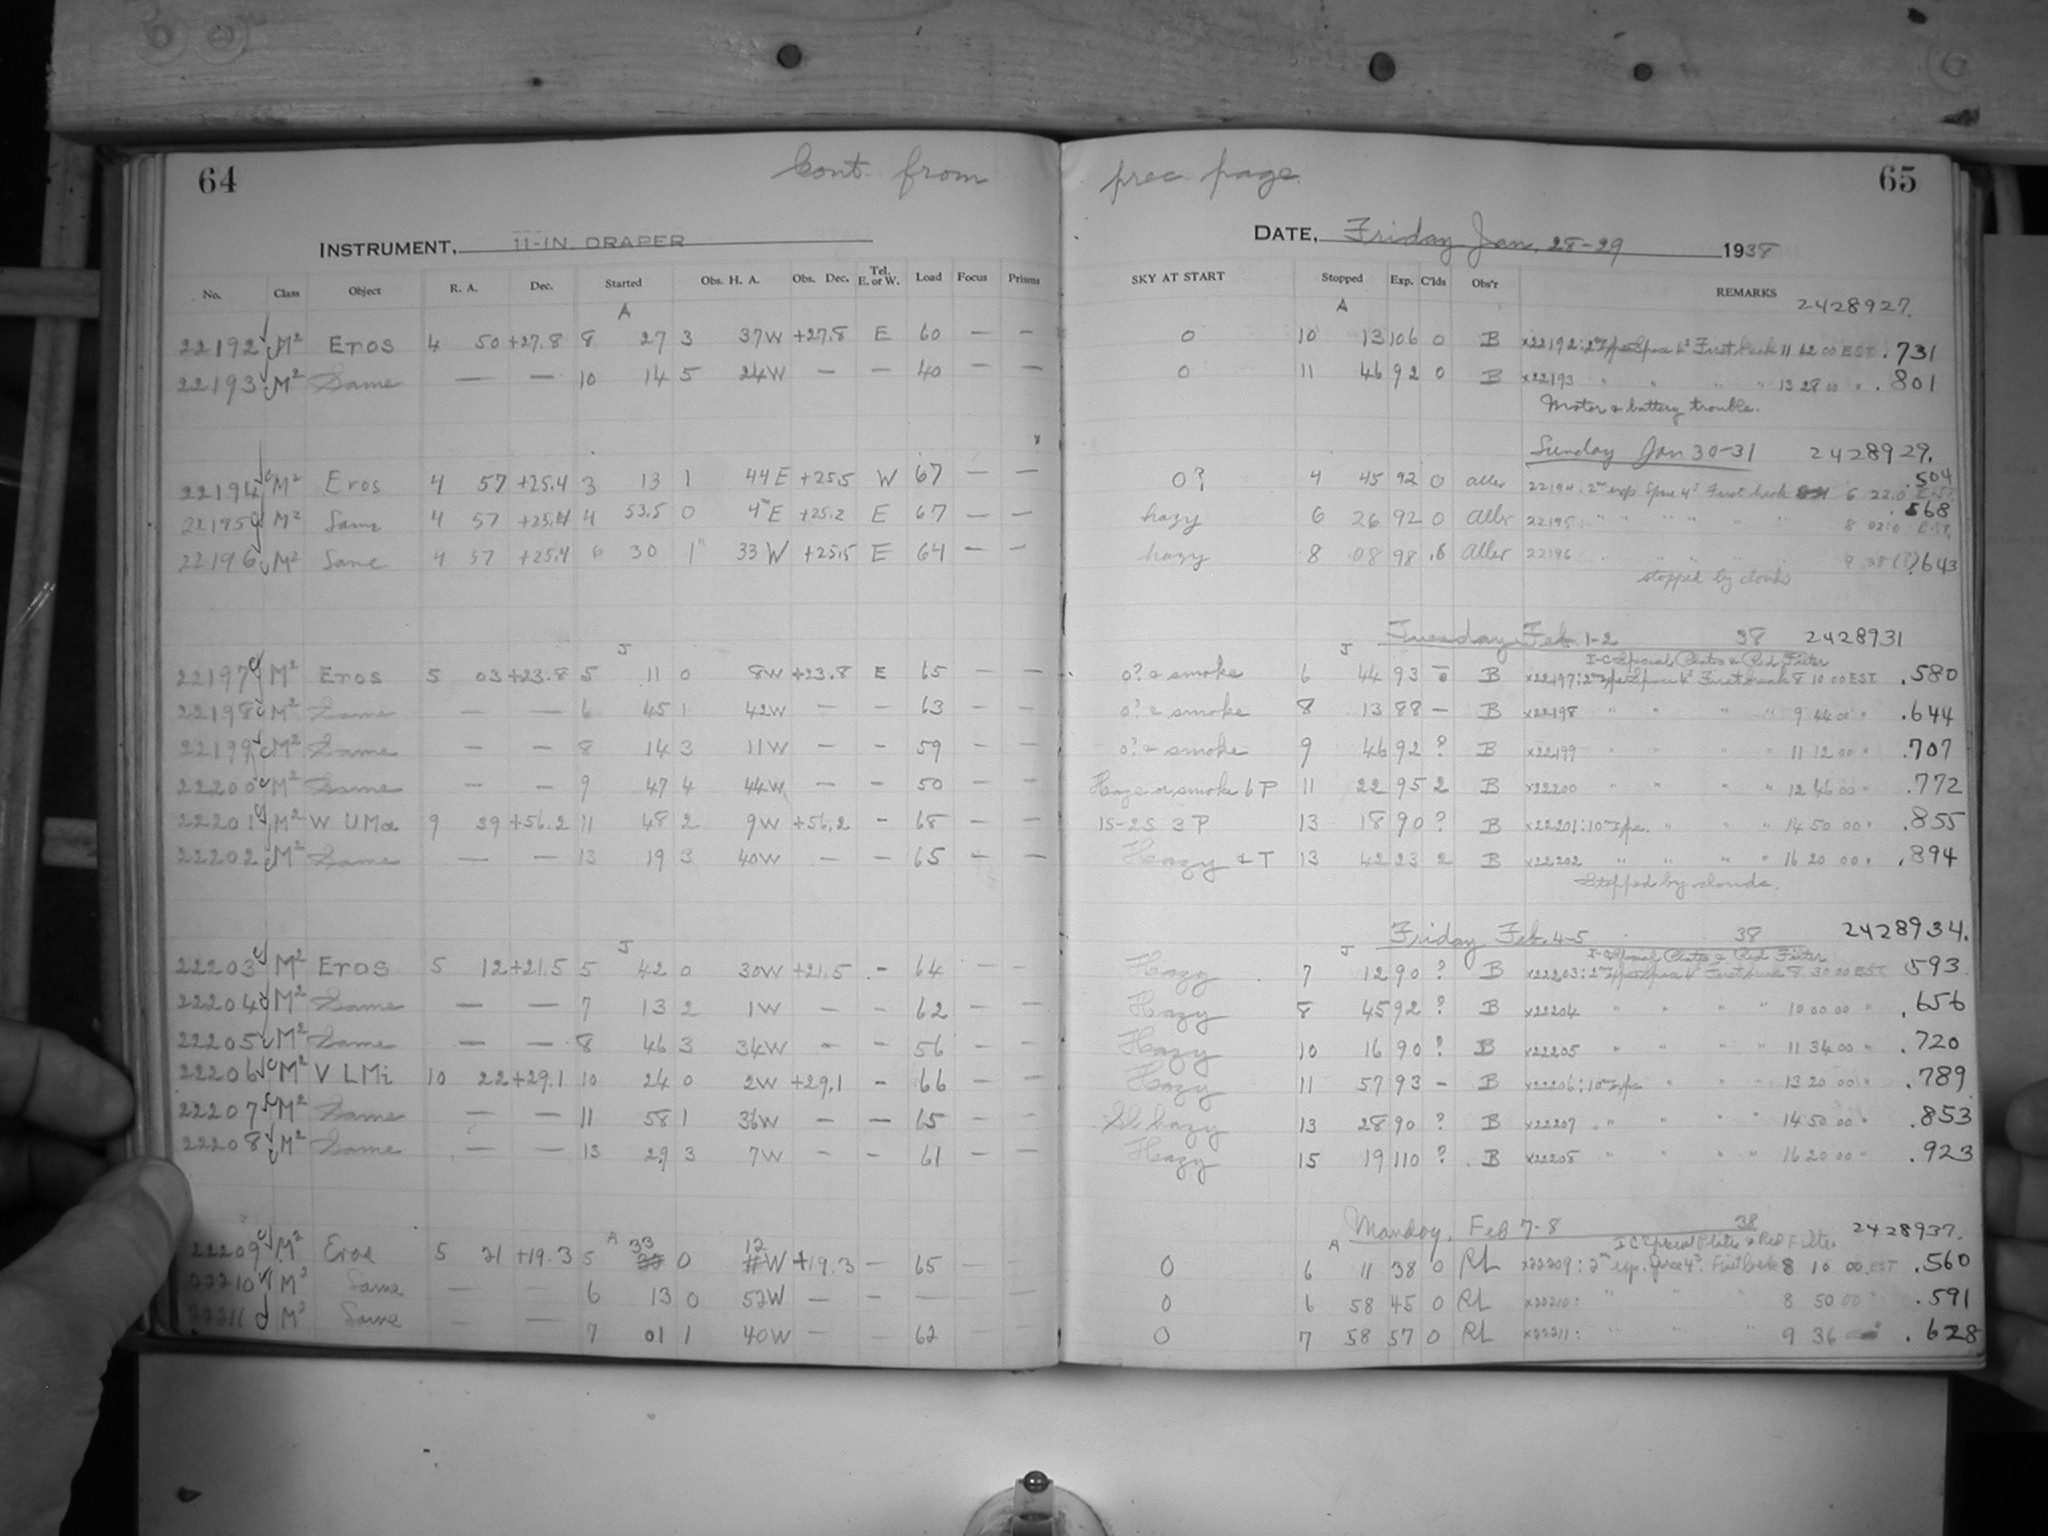 64
Cont. from prec. page
65
INSTRUMENT, 11-IN. DRAPER
DATE, Friday Jan. 28-29 1938
No. Class Object R. A. Dec. Started Obs. H. A. Obs. Dec. Tel. E. or W. Load Focus Prisms SKY AT START Stopped Exp. C'lds Obs'r REMARKS
A A 2428927.
22192 M² Eros 4 50 +27.8 8 27 3 37W +27.8 E 60 — — 0 10 13 106 0 B x22192: First break 11 42 00 EST .731
22193 M² Same — — 10 14 5 24W — — 40 — — 0 11 46 92 0 B x22193 " " " " 13 28 00 " .801
Motor & battery trouble.
Sunday Jan 30-31 2428929.
22194 M² Eros 4 57 +25.4 3 13 1 44E +25.5 W 67 — — 0? 4 45 92 0 Aller 22194: 2nd exp. Space 4ˢ First break 6 22.0 E.S.T. .504
22195 M² Same 4 57 +25.4 4 53.5 0 4ᵐE +25.2 E 67 — — hazy 6 26 92 0 Aller 22195: " " " " 8 02.0 E.S.T. .568
22196 M² Same 4 57 +25.4 6 30 1 33W +25.5 E 64 — — hazy 8 08 98 .8 Aller 22196 9 38 (?) .643
stopped by clouds
Tuesday Feb. 1-2 38 2428931
J J I-C Special Plates & Red Filter
22197 M² Eros 5 03 +23.8 5 11 0 8W +23.8 E 65 — — 0? & smoke 6 44 93 — B x22197: First break 8 10 00 EST .580
22198 M² Same — — 6 45 1 42W — — 63 — — 0? & smoke 8 13 88 — B x22198 " " " " 9 44 00 " .644
22199 M² Same — — 8 14 3 11W — — 59 — — 0? & smoke 9 46 92 ? B x22199 " " " " 11 12 00 " .707
22200 M² Same — — 9 47 4 44W — — 50 — — Haze or smoke 6P 11 22 95 2 B x22200 " " " " 12 46 00 " .772
22201 M² W UMa 9 39 +56.2 11 48 2 9W +56.2 - 68 — — 1S-2S 3P 13 18 90 ? B x22201: " " " 14 50 00 " .855
22202 M² Same — — 13 19 3 40W — — 65 — — Hazy & T 13 42 23 2 B x22202 " " " " 16 20 00 " .894
Stopped by clouds.
Friday Feb. 4-5 38 2428934.
J J I-C Special Plates & Red Filter
22203 M² Eros 5 12 +21.5 5 42 0 30W +21.5 - 64 — — Hazy 7 12 90 ? B x22203: First break 8 30 00 EST .593
22204 M² Same — — 7 13 2 1W — — 62 — — Hazy 8 45 92 ? B x22204 " " " " 10 00 00 " .656
22205 M² Same — — 8 46 3 34W — — 56 — — Hazy 10 16 90 ? B x22205 " " " " 11 34 00 " .720
22206 M² V LMi 10 22 +29.1 10 24 0 2W +29.1 - 66 — — Hazy 11 57 93 — B x22206: " " " 13 20 00 " .789
22207 M² Same — — 11 58 1 36W — — 65 — — Sl. hazy 13 28 90 ? B x22207 " " " " 14 50 00 " .853
22208 M² Same — — 13 29 3 7W — — 61 — — Hazy 15 19 110 ? B x22208 " " " " 16 20 00 " .923
Monday, Feb 7-8 38 2428937.
A A I C Special Plates & Red Filter
22209 M² Eros 5 21 +19.3 5 33 0 12 W +19.3 — 65 — — 0 6 11 38 0 RL x22209: 2nd exp. space 4ˢ. First break 8 10 00 EST .560
22210 M² Same — — 6 13 0 52W — — — — — 0 6 58 45 0 RL x22210: " " " 8 50 00 " .591
22211 M² Same — — 7 01 1 40W — — 62 — — 0 7 58 57 0 RL x22211: " " " 9 36 .628